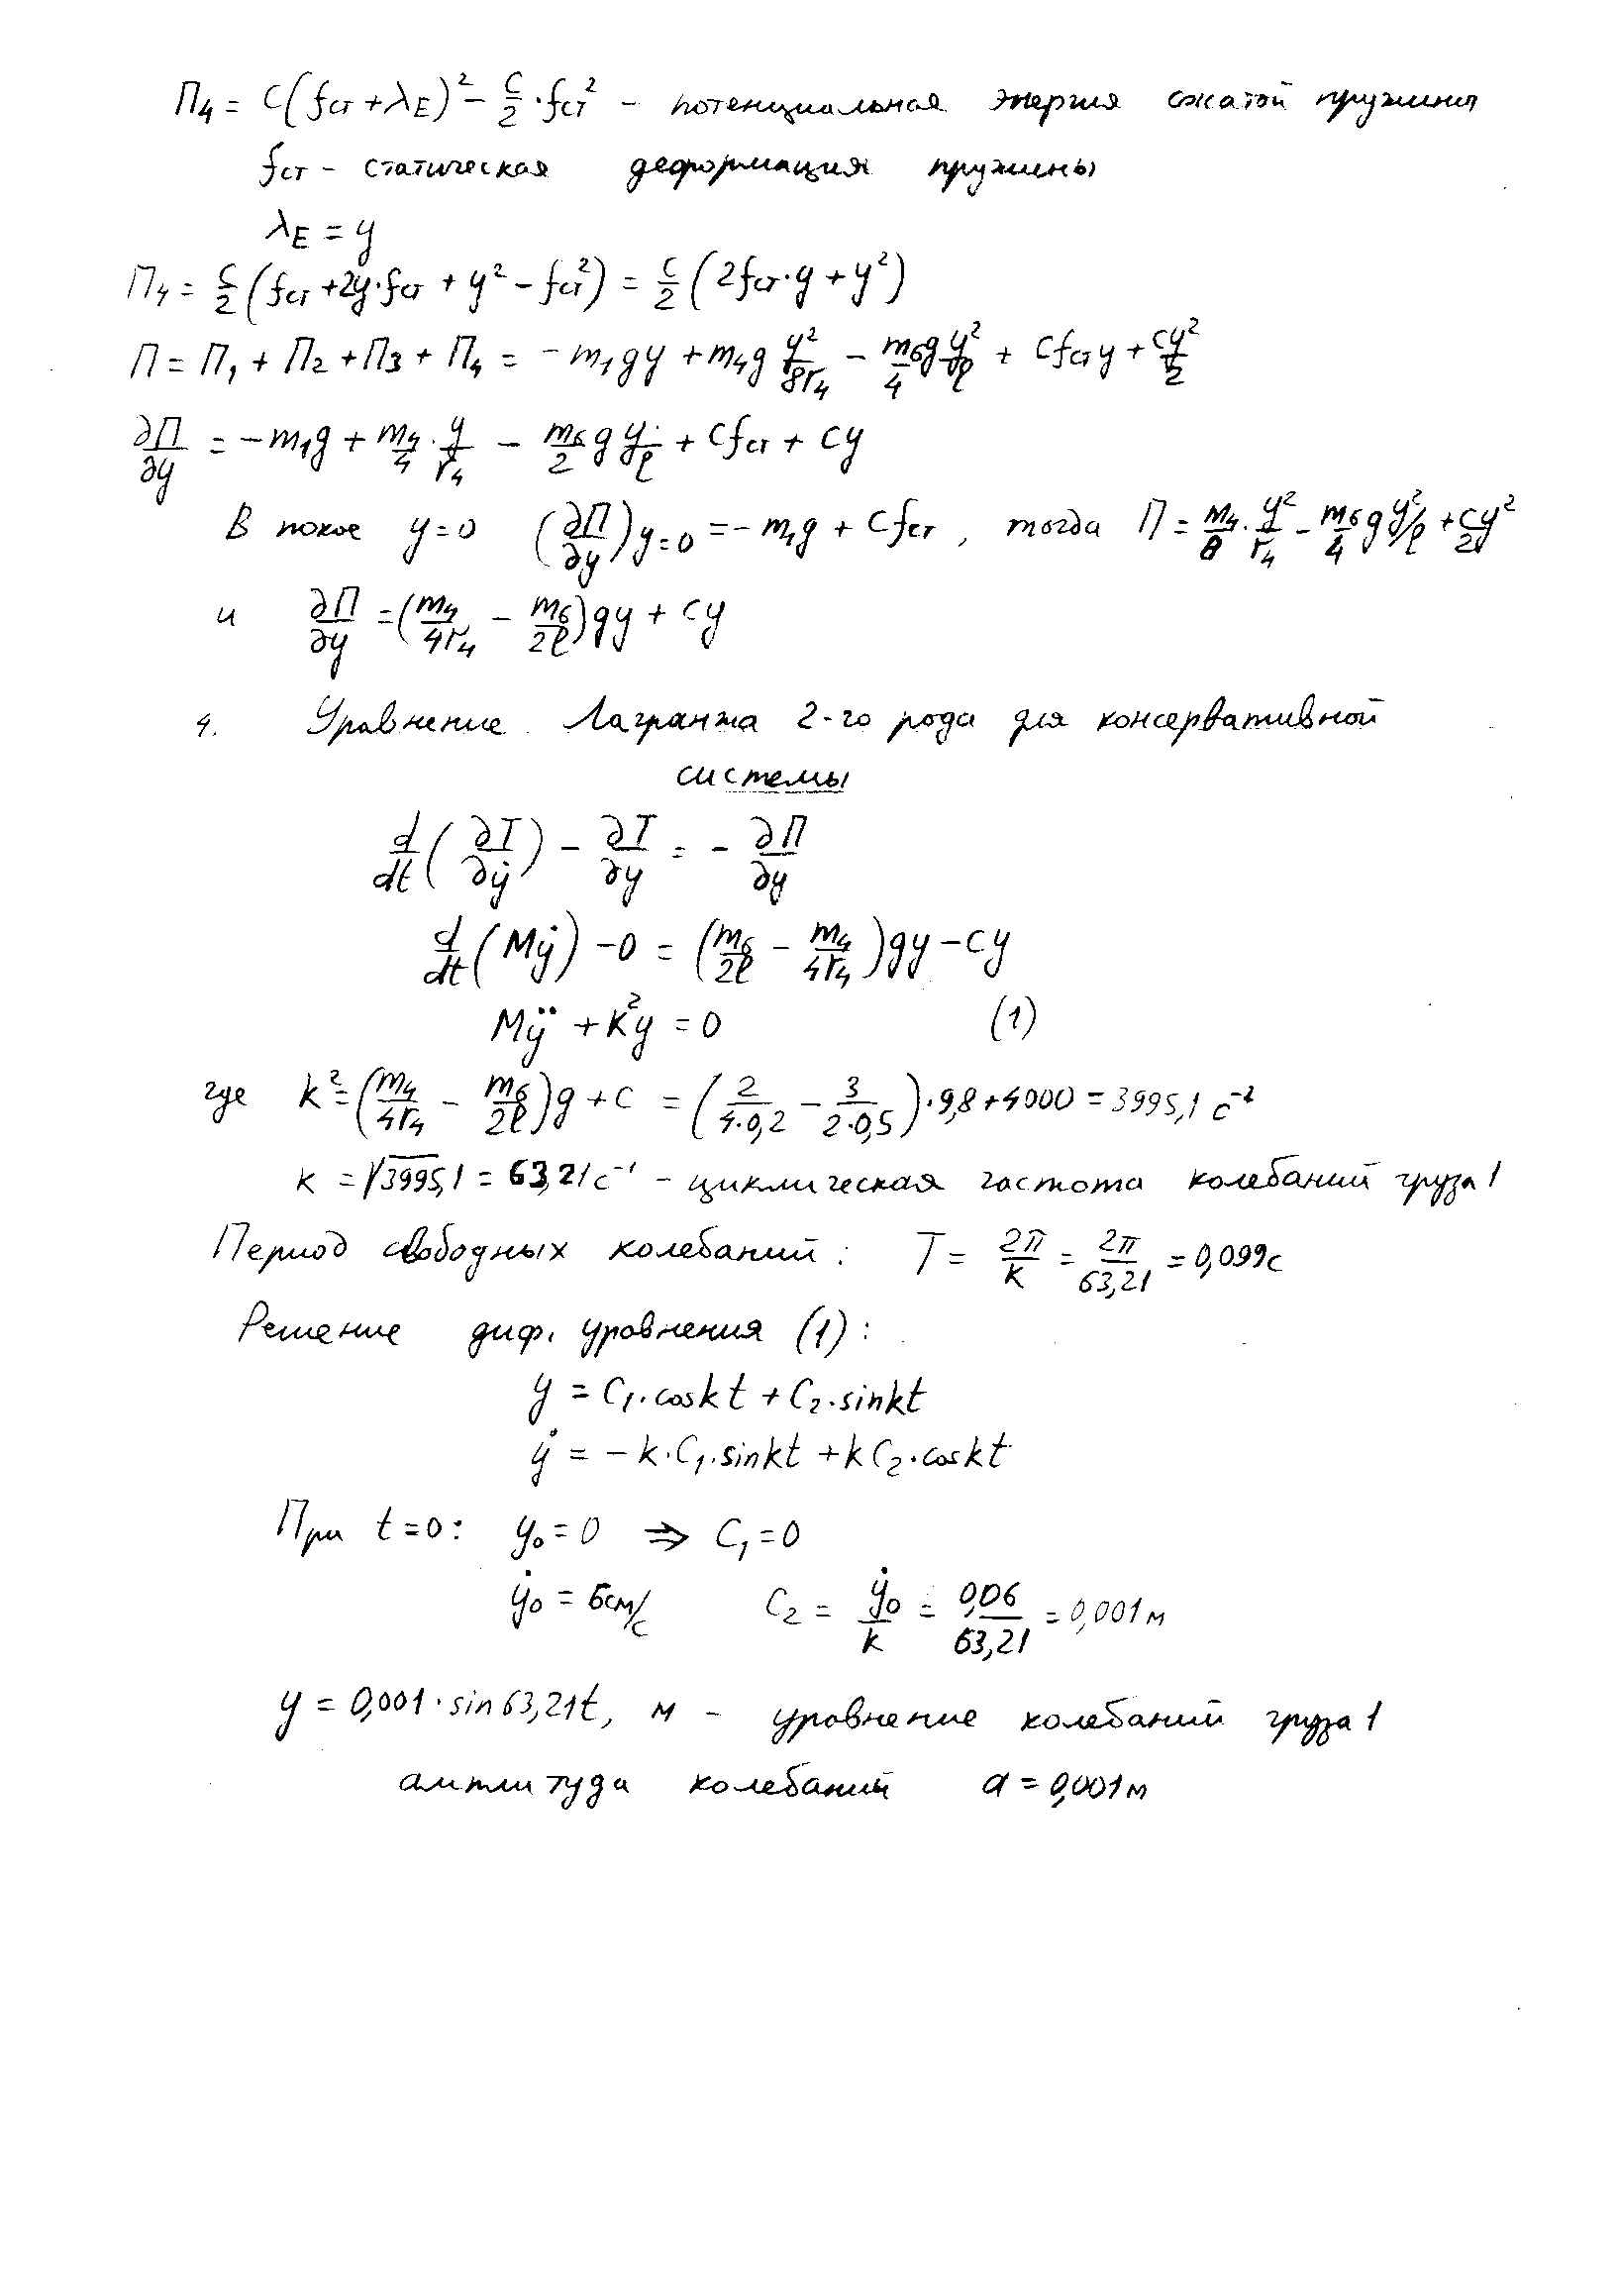 П₄ = C(fст + λE)² − C/2 · fст² – потенциальная энергия сжатой пружины
fст – статическая деформация пружины
λE = y
П₄ = C/2 (fст + 2y·fст + y² − fст²) = C/2 (2fст·y + y²)
П = П₁ + П₂ + П₃ + П₄ = −m₁gy + m₄g y²/8r₄ − m₆/4 g y²/ℓ + Cfст y + Cy²/2
∂П/∂y = −m₁g + m₄/4 · y/r₄ − m₆/2 g y/ℓ + Cfст + Cy
В покое y=0 (∂П/∂y)y=0 = −m₁g + Cfст, тогда П = m₄/8 · y²/r₄ − m₆/4 g y²/ℓ + Cy²/2
и ∂П/∂y = (m₄/4r₄ − m₆/2ℓ)gy + Cy
4. Уравнение Лагранжа 2-го рода для консервативной
системы
d/dt (∂T/∂ẏ) − ∂T/∂y = − ∂П/∂y
d/dt (Mẏ) − 0 = (m₆/2ℓ − m₄/4r₄)gy − Cy
Mÿ + K²y = 0 (1)
где k² = (m₄/4r₄ − m₆/2ℓ)g + C = (2/4·0,2 − 3/2·0,5)·9,8 + 4000 = 3995,1 c⁻²
k = √3995,1 = 63,21 c⁻¹ – циклическая частота колебаний груза 1
Период свободных колебаний: T = 2π/k = 2π/63,21 = 0,099c
Решение диф. уравнения (1):
y = C₁·cos kt + C₂·sin kt
ẏ = −k·C₁·sin kt + kC₂·cos kt
При t=0: y₀ = 0 ⇒ C₁ = 0
ẏ₀ = 6см/с C₂ = ẏ₀/k = 0,06/63,21 = 0,001 м
y = 0,001·sin 63,21t, м – уравнение колебаний груза 1
амплитуда колебаний a = 0,001 м